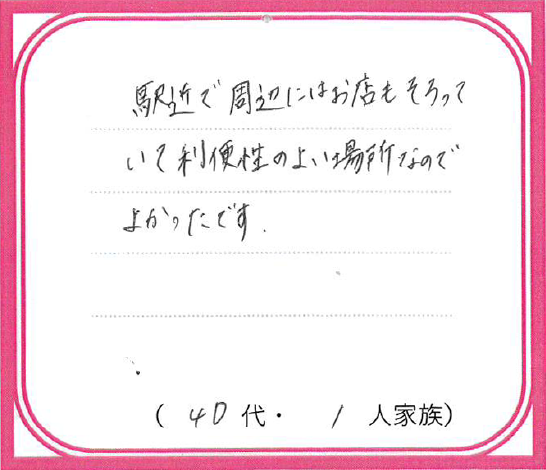 駅近で周辺にはお店もそろって
いて利便性のよい場所なので
よかったです.
( 40代・ 1人家族)